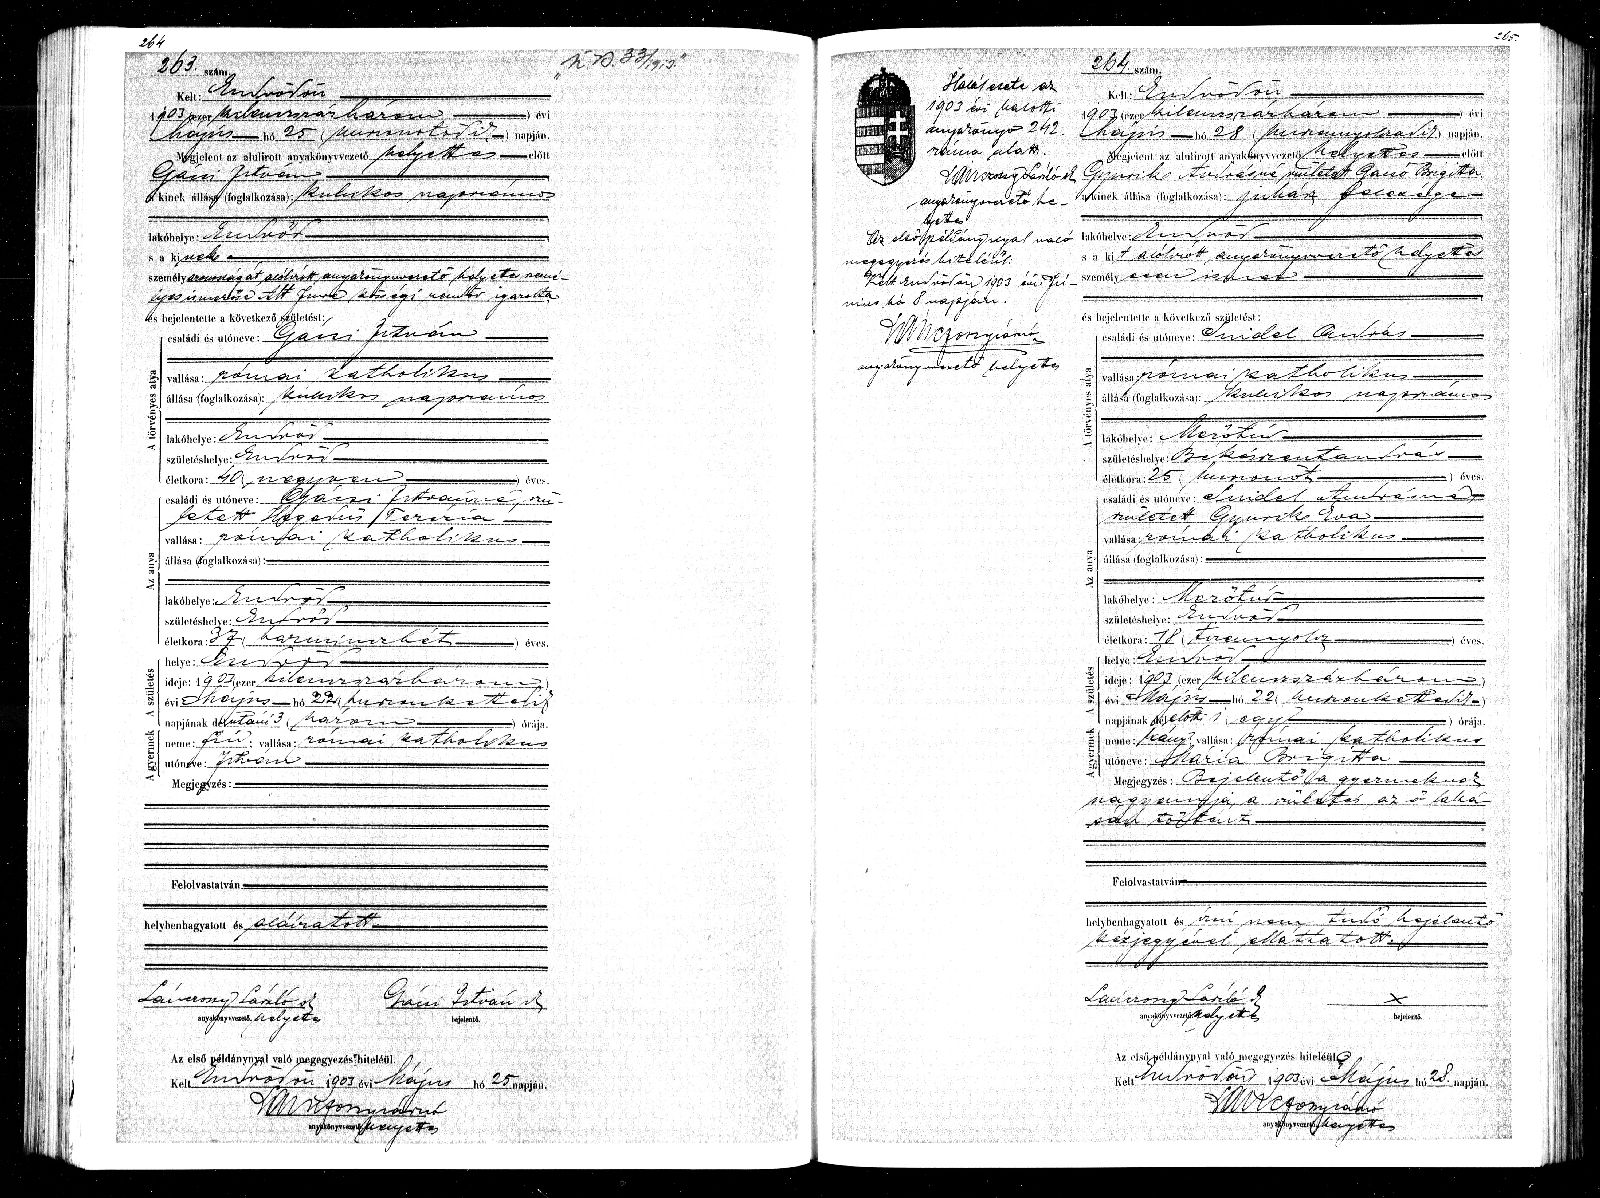 264
263. szám.
Kelt: Endrődön
1903 (ezer kilenczszázhárom) évi
május hó 25 (huszonötödik) napján.
Megjelent az alulirott anyakönyvvezető helyettes előtt
Gácsi István
a kinek állása (foglalkozása): kubikos napszámos
lakóhelye: Endrőd
s a kinek
személyazonosságát alólírott anyakönyvvezető helyettes
és bejelentette a következő születést:
családi és utóneve: Gácsi István
A törvényes atya
vallása: római katholikus
állása (foglalkozása): kubikos napszámos
lakóhelye: Endrőd
születéshelye: Endrőd
életkora: 40 (negyven) éves.
Az anya
családi és utóneve: Gácsi Istvánné, szü-
letett Hegedüs Terézia
vallása: római katholikus
állása (foglalkozása):
lakóhelye: Endrőd
születéshelye: Endrőd
életkora: 37 (harminczhét) éves.
A születés
helye: Endrőd
ideje: 1903 (ezer kilenczszázhárom)
évi május hó 22 (huszonkettedik)
napjának délutáni 3 (három) órája.
A gyermek
neme: fiú; vallása: római katholikus
utóneve: István
Megjegyzés:
Felolvastatván
helybenhagyatott és aláíratott.
anyakönyvvezető helyettes
Gácsi István
bejelentő.
Az első példánynyal való megegyezés hiteléül.
Kelt Endrődön 1903 évi Május hó 25 napján.
anyakönyvvezető helyettes
265.
Halálesete az
1903 évi halotti
anyakönyv 242.
száma alatt.
anyakönyvvezető he-
lyettes
Az első példánynyal való
megegyezés hiteléül.
Kelt Endrődön 1903 évi Jú-
nius hó 8 napján.
anyakönyvvezető helyettes
264. szám.
Kelt: Endrődön
1903 (ezer kilenczszázhárom) évi
május hó 28 (huszonnyolczadik) napján.
Megjelent az alulirott anyakönyvvezető helyettes előtt
Gyurik Andrásné született Brigitta
a kinek állása (foglalkozása): juhász felesége
lakóhelye: Endrőd
s a kit alólírott anyakönyvvezető helyettes
személyesen ismer
és bejelentette a következő születést:
családi és utóneve: András
A törvényes atya
vallása: római katholikus
állása (foglalkozása): kubikos napszámos
lakóhelye: Mezőtúr
születéshelye: Békésszentandrás
életkora: 25 (huszonöt) éves.
Az anya
családi és utóneve: Andrásné,
született Gyurik Éva
vallása: római katholikus
állása (foglalkozása):
lakóhelye: Mezőtúr
születéshelye: Endrőd
életkora: 18 (tizennyolcz) éves.
A születés
helye: Endrőd
ideje: 1903 (ezer kilenczszázhárom)
évi Május hó 22 (huszonkettedik)
napjának délelőtti 1 (egy) órája.
A gyermek
neme: leány; vallása: római katholikus
utóneve: Mária Brigitta
Megjegyzés: Bejelentő a gyermeknek
nagyanyja, a születés az ő laká-
sán történt.
Felolvastatván
helybenhagyatott és írni nem tudó bejelentő
kézjegyével elláttatott.
anyakönyvvezető helyettes
x
bejelentő.
Az első példánynyal való megegyezés hiteléül.
Kelt Endrődön 1903 évi Május hó 28. napján.
anyakönyvvezető helyettes